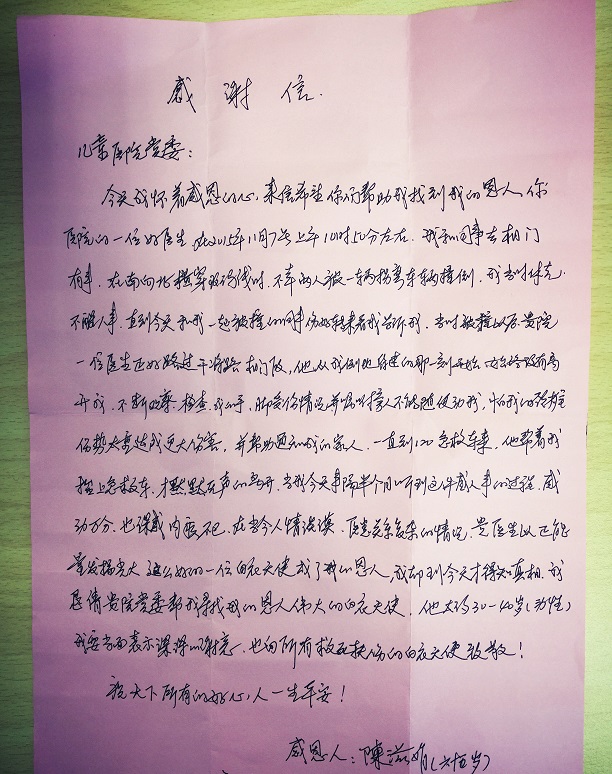 感谢信.
儿童医院党委：
今天我怀着感恩的心，来信希望你们帮助我找到我的恩人，你
医院的一位好医生，在2015年11月7号上午10时50分左右，我和同事去相门
有事，在由南向北横穿斑马线时，不幸两人被一辆拐弯车辆撞倒，我当时休克
不醒人事，直到今天和我一起被撞的同事伤好转来看我告诉我，当时被撞以后贵院
一位医生正好路过干将路相门段，他从我倒地昏迷的那一刻开始，始终没有离
开我，不断观察，检查我的手，脚受伤情况并嘱咐撞人不能随便动我，怕我的颈椎
伤势太重造成更大伤害，并帮助通知我的家人，一直到120急救车来，他帮着我
抬上急救车，才默默无声的离开，当我今天事隔半个月听到这件感人事的过程，感
动万分，也深感内疚不已，在当今人情淡漠，医患关系复杂的情况，贵医生以正能
量发扬光大，这么好的一位白衣天使成了我的恩人，我却到今天才得知真相，我
恳请贵院党委帮我寻找我的恩人伟大的白衣天使，他大约30-40岁(男性)
我要当面表示深深的谢意，也向所有救死扶伤的白衣天使致敬！
祝天下所有的好心人一生平安！
感恩人：陳滋娟(六十五岁)